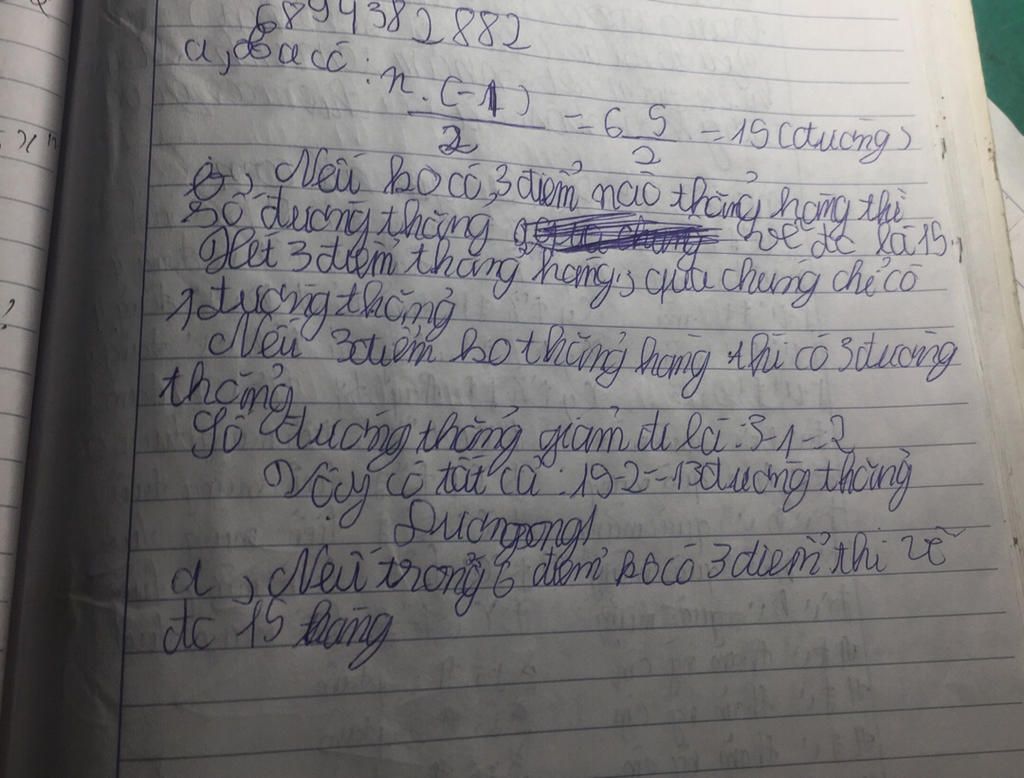 6894382882
a, Ta có: n.(-1)/2 = 6 5/2 = 15 (đường)
b, Nếu ko có 3 điểm nào thẳng hàng thì
Số đường thẳng vẽ đc là 15.
Xét 3 điểm thẳng hàng, qua chúng chỉ có
1 đường thẳng
Nếu 3 điểm ko thẳng hàng thì có 3 đường
thẳng
Số đường thẳng giảm đi là: 3-1=2
Vậy có tất cả: 15-2=13 đường thẳng
d, Nếu trong 6 điểm ko có 3 điểm thì vẽ
đc 15